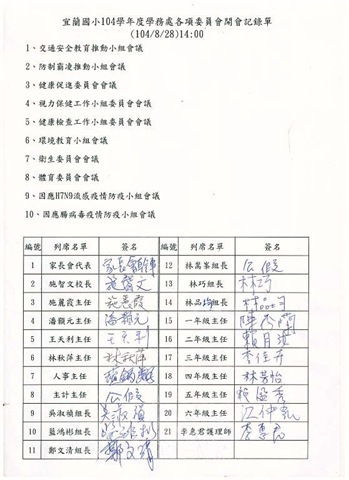 宜蘭國小104學年度學務處各項委員會開會記錄單
(104/8/28)14:00
1、交通安全教育推動小組會議
2、防制霸凌推動小組會議
3、健康促進委員會會議
4、視力保健工作小組委員會會議
5、健康檢查工作小組委員會會議
6、環境教育小組會議
7、衛生委員會會議
8、體育委員會會議
9、因應H7N9流感疫情防疫小組會議
10、因應腸病毒疫情防疫小組會議
編號 列席名單 簽名 編號 列席名單 簽名
1 家長會代表 12 林嵩峯組長 公假
2 施智文校長 施智文 13 林巧組長 林巧
3 施麗霞主任 施麗霞 14 林品均組長 林品均
4 潘顯元主任 潘顯元 15 一年級主任
5 王天利主任 王天利 16 二年級主任 賴月玫
6 林秋萍主任 林秋萍 17 三年級主任 李佳卉
7 人事主任 18 四年級主任 林芳怡
8 主計主任 公假 19 五年級主任
9 吳淑禎組長 吳淑禎 20 六年級主任
10 藍鴻彬組長 21 李惠君護理師 李惠君
11 鄭文清組長 鄭文清